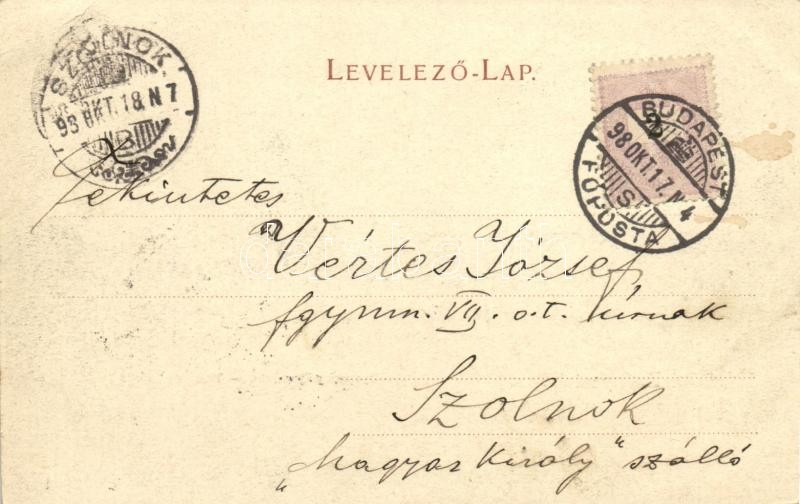 SZOLNOK
98 OKT. 18. N 7
B
LEVELEZŐ-LAP.
BUDAPEST
98 OKT. 17. N 4
S
FŐPOSTA
Tekintetes
Vértes József
fgymn. VII. o.t. úrnak
Szolnok
„Magyar Király" szálló